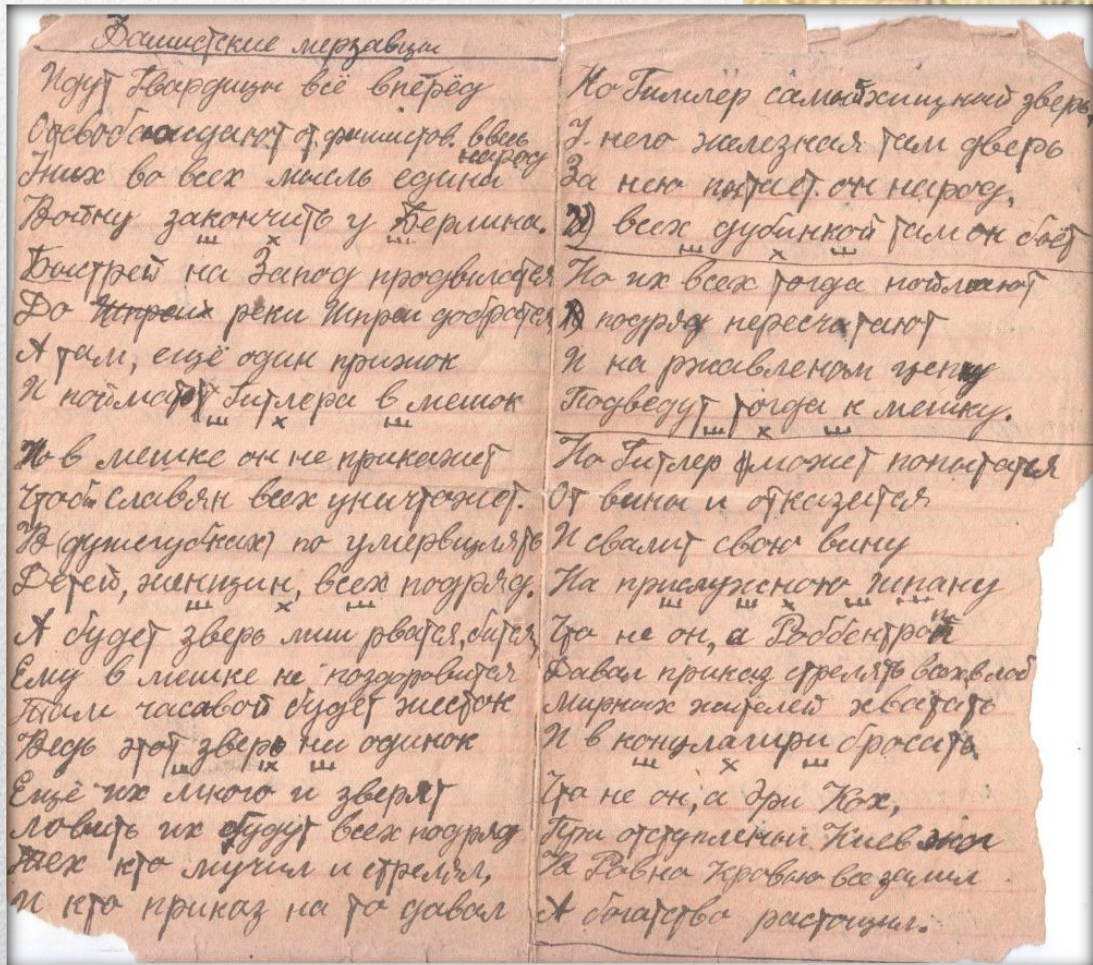 Фашистские мерзавцы
Идут Гвардицы всё вперёд
Освобождают от фашистов. ввесь народ
Уних во всех мысль едина
Войну закончить у Берлина.
ш х ш
Быстрей на Запод продвигатся
До реки Шпреи добратся
А там, ещё один прижок
И поймают Гитлера в мешок
ш х ш
Но в мешке он не прикажет
Чтоб славян всех уничтожет.
В (душегубках) по умервщлять
Детей, женщин, всех подряд.
ш х ш
А будет зверь лиш рватся, битця
Ему в мешке не поздоровится
Там часавой будет жесток
Ведь этот зверь ни одинок
ш х ш
Ещё их много и зверят
ловить их будут всех подряд
Тех кто мучил и стрелял,
И кто приказ на то давал
Но Гимлер самый хищный зверь,
У него железная там дверь
За нею питает он народ,
И всех дубинкой там он бьёт
ш х ш
Но их всех тогда поймают
И подряд пересчитают
И на ржавленом цепку
Подведут тогда к мешку.
ш х ш
Но Гитлер может попытатся
От вины и отказатся
И свалит свою вину
На прислужною шпану
ш ш х ш ш
Что не он, а Роббентроп
Давал приказ стрелять всех в лоб
Мирных жителей хватать
И в концлагири бросать
ш х ш
Что не он, а Эри Кох,
При отступлении Киев жог
В Ровна Кровью все залил
А богатства растощил.